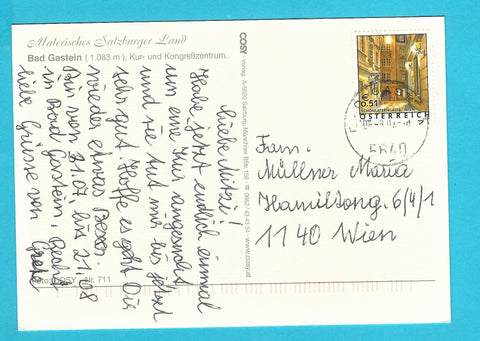 Malerisches Salzburger Land
Bad Gastein (1.083 m), Kur- und Kongreßzentrum.
Liebe Mitzi!
Habe jetzt endlich einmal
um eine Kur angesucht
und sie tut mir bis jetzt
sehr gut. Hoffe es geht Dir
wieder etwas Besser.
Bin von 31.07. bis 21.08
in Bad Gastein. Recht
liebe Grüsse von
Foto: COSY Nr. 711
COSY - Verlag, A-5020 Salzburg, Münchner Bdstr. 156
www.cosy.at
€ 0.51
ÖSTERREICH
5640
Fam.
Müllner Maria
Hamiltong. 6/4/1
1140 Wien